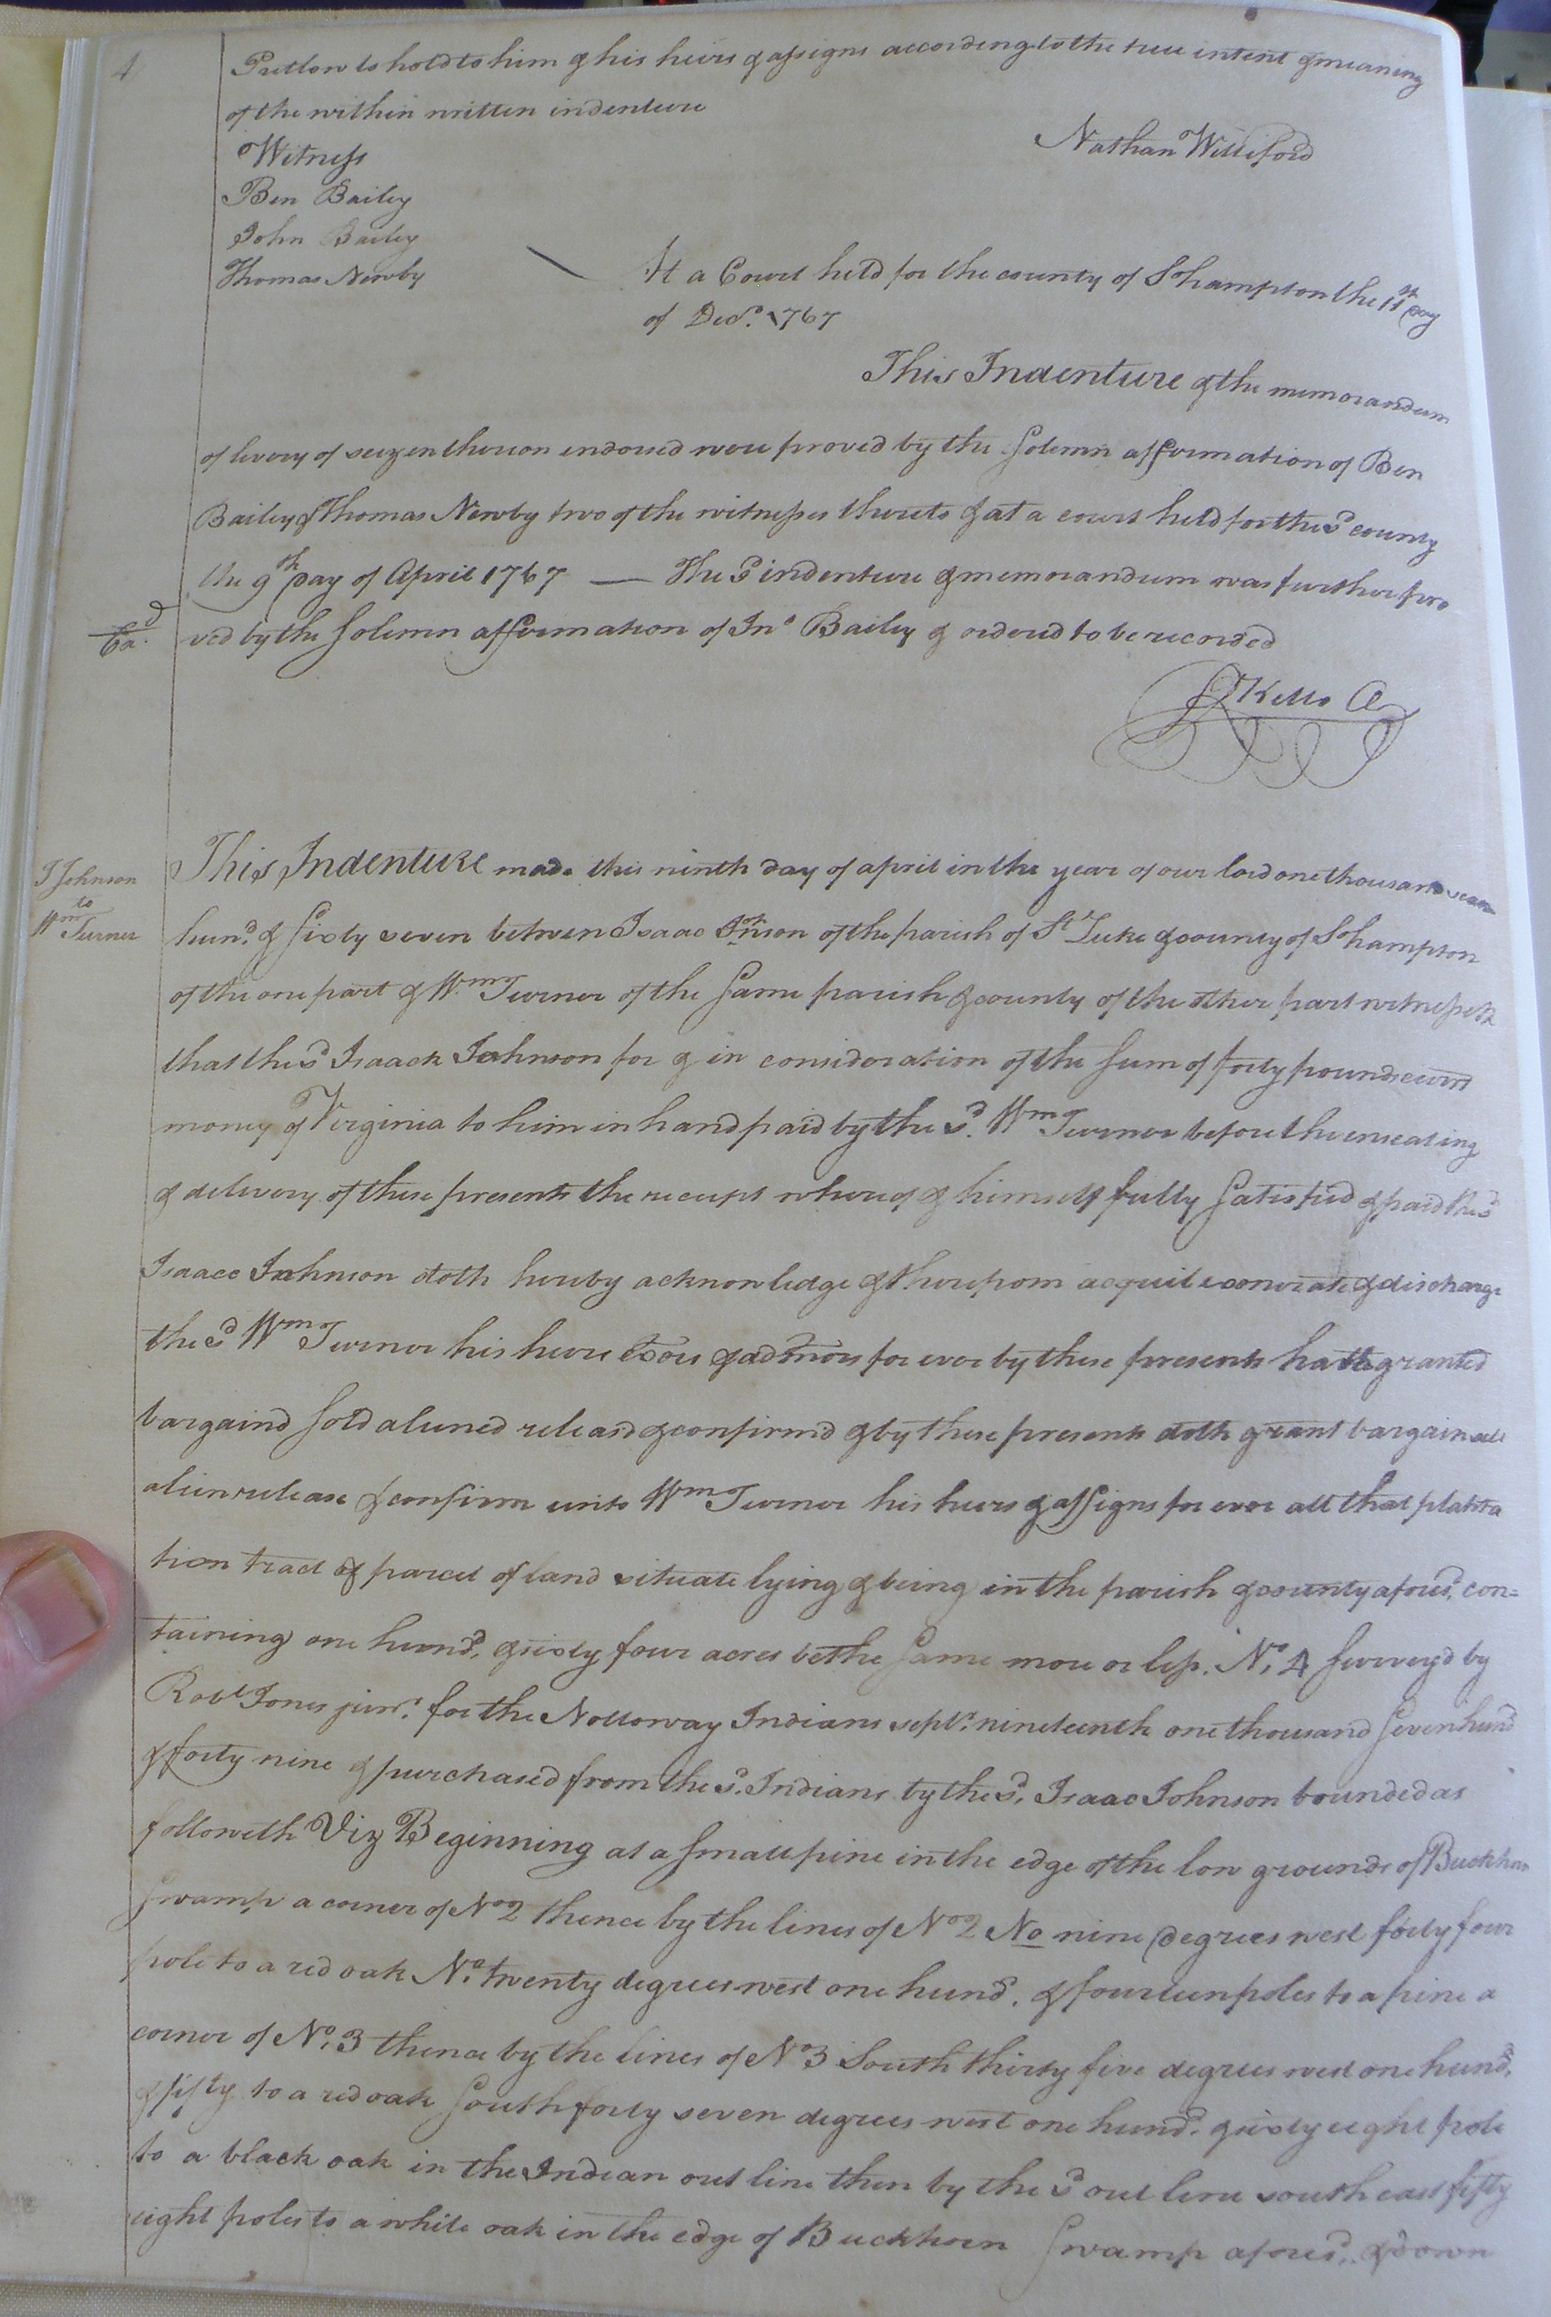 4
Putlow to hold to him & his heirs & assigns according to the true intent & meaning
of the within written indenture
Nathan Williford
Witness
Ben Bailey
John Bailey
Thomas Newby
At a Court held for the county of S°hampton the 11th day
of Decr. 1767
This Indenture & the memorandum
of livery of seizen thereon endorsed were proved by the solemn affirmation of Ben
Bailey & Thomas Newby two of the witnesses thereto & at a court held for the sd county
the 9th day of April 1767 — The sd indenture & memorandum was further pro
Exd.
ved by the solemn affirmation of Jno Bailey & ordered to be recorded
R Kello
I Johnson
to
Wm Turner
This Indenture made this ninth day of april in the year of our lord one thousand seven
hund. & sixty seven between Isaac Johnson of the parish of St Luke & county of S°hampton
of the one part & Wm Turner of the same parish & county of the other part witnesseth
that the sd Isaack Johnson for & in consideration of the sum of forty pounds curt
money of Virginia to him in hand paid by the sd. Wm Turner before the ensealing
& delivery of these presents the receipt whereof & himself fully satisfied & paid the sd
Isaace Johnson doth hereby acknowledge & therefrom acquit exonerate & discharge
the sd Wm Turner his heirs Exors & admors for ever by these presents hath granted
bargaind sold aliened releasd & confirmd & by these presents doth grant bargain sell
alien release & confirm unto Wm Turner his heirs & assigns for ever all that planta
tion tract & parcel of land situate lying & being in the parish & county aforesd. con=
taining one hund. & sixty four acres be the same more or less. No. 4 surveyd by
Robt Jones junr. for the Nottoway Indians septr. nineteenth one thousand seven hund
& forty nine & purchased from the sd. Indians by the sd. Isaac Johnson bounded as
followeth Viz Beginning at a small pine in the edge of the low grounds of Buckhorn
swamp a corner of No 2 thence by the lines of No 2 No nine degrees west forty four
pole to a red oak No. twenty degrees west one hund. & fourteen poles to a pine a
corner of No. 3 thence by the lines of No 3 South thirty five degrees west one hund.
& fifty to a red oak South forty seven degrees west one hund. & sixty eight pole
to a black oak in the Indian out line then by the sd out line south east fifty
eight poles to a white oak in the edge of Buckhorn Swamp aforesd. & down